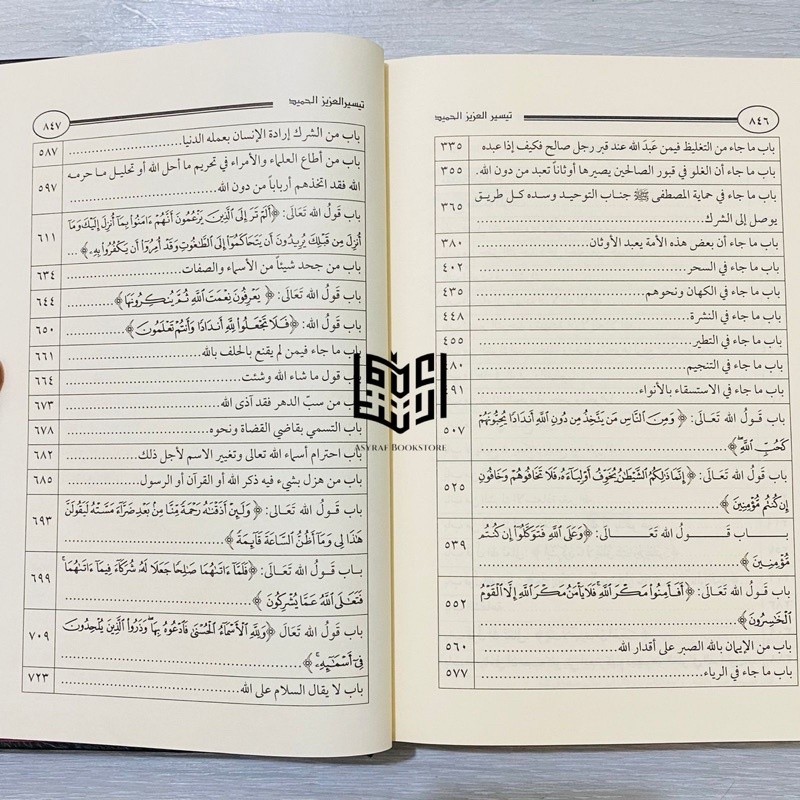 ٨٤٦
تيسير العزيز الحميد
باب ما جاء من التغليظ فيمن عَبَدَ الله عند قبر رجل صالح فكيف إذا عبده
٣٣٥
باب ما جاء أن الغلو في قبور الصالحين يصيرها أوثاناً تعبد من دون الله.
٣٥٥
باب ما جاء في حماية المصطفى ﷺ جناب التوحيد وسده كل طريق
يوصل إلى الشرك
٣٦٥
باب ما جاء أن بعض هذه الأمة يعبد الأوثان
٣٨٠
باب ما جاء في السحر
٤٠٢
باب ما جاء في الكهان ونحوهم
٤٣٥
باب ما جاء في النشرة
٤٤٨
باب ما جاء في التطير
٤٥٥
باب ما جاء في التنجيم
٨٠
باب ما جاء في الاستسقاء بالأنواء
٩١
باب قَولُ اللهِ تَعَالَى: ﴿ وَمِنَ النَّاسِ مَن يَتَّخِذُ مِن دُونِ اللَّهِ أَندَادًا يُحِبُّونَهُمْ
كَحُبِّ اللَّهِ ﴾
٥٠٧
باب قَولُ اللهِ تَعَالَى: ﴿ إِنَّمَا ذَٰلِكُمُ الشَّيْطَانُ يُخَوِّفُ أَوْلِيَاءَهُ فَلَا تَخَافُوهُمْ وَخَافُونِ
إِن كُنتُم مُّؤْمِنِينَ ﴾
٥٢٥
باب قَولُ اللهِ تَعَالَى: ﴿وَعَلَى اللَّهِ فَتَوَكَّلُوا إِن كُنتُم
مُّؤْمِنِينَ ﴾
٥٣٩
باب قَولُ اللهِ تَعَالَى: ﴿ أَفَأَمِنُوا مَكْرَ اللَّهِ فَلَا يَأْمَنُ مَكْرَ اللَّهِ إِلَّا الْقَوْمُ
الْخَاسِرُونَ ﴾
٥٥٢
باب من الإيمان بالله الصبر على أقدار الله
٥٦٠
باب ما جاء في الرياء
٥٧٧
تيسير العزيز الحميد
٨٤٧
باب من الشرك إرادة الإنسان بعمله الدنيا
٥٨٧
باب من أطاع العلماء والأمراء في تحريم ما أحل الله أو تحليل ما حرمه
الله فقد اتخذهم أرباباً من دون الله
٥٩٧
باب قَولُ اللهِ تَعَالَى: ﴿أَلَمْ تَرَ إِلَى الَّذِينَ يَزْعُمُونَ أَنَّهُمْ ءَامَنُوا بِمَا أُنزِلَ إِلَيْكَ وَمَا
أُنزِلَ مِن قَبْلِكَ يُرِيدُونَ أَن يَتَحَاكَمُوا إِلَى الطَّاغُوتِ وَقَدْ أُمِرُوا أَن يَكْفُرُوا بِهِ ﴾
٦١١
باب من جحد شيئاً من الأسماء والصفات
٦٣٤
باب قَولُ اللهِ تَعَالَى: ﴿ يَعْرِفُونَ نِعْمَتَ اللَّهِ ثُمَّ يُنكِرُونَهَا ﴾
٦٤٤
باب قَولُ اللهِ: ﴿فَلَا تَجْعَلُوا لِلَّهِ أَندَادًا وَأَنتُمْ تَعْلَمُونَ ﴾
٦٥٠
باب ما جاء فيمن لم يقنع بالحلف بالله
٦٦١
باب قول ما شاء الله وشئت
٦٦٤
من سبّ الدهر فقد آذى الله
٦٧٣
باب التسمي بقاضي القضاة ونحوه
٦٧٨
باب احترام أسماء الله تعالى وتغيير الاسم لأجل ذلك
٦٨٢
باب من هزل بشيء فيه ذكر الله أو القرآن أو الرسول
٦٨٥
باب قَولُ اللهِ تَعَالَى: ﴿ وَلَئِنْ أَذَقْنَاهُ رَحْمَةً مِّنَّا مِن بَعْدِ ضَرَّاءَ مَسَّتْهُ لَيَقُولَنَّ
هَٰذَا لِي وَمَا أَظُنُّ السَّاعَةَ قَائِمَةً ﴾
٦٩٣
باب قَولُ اللهِ تَعَالَى: ﴿فَلَمَّا ءَاتَاهُمَا صَالِحًا جَعَلَا لَهُ شُرَكَاءَ فِيمَا ءَاتَاهُمَا
فَتَعَالَى اللَّهُ عَمَّا يُشْرِكُونَ ﴾
٦٩٩
باب قَولُ اللهِ تَعَالَ ﴿وَلِلَّهِ الْأَسْمَاءُ الْحُسْنَىٰ فَادْعُوهُ بِهَا وَذَرُوا الَّذِينَ يُلْحِدُونَ
فِي أَسْمَائِهِ ﴾
٧٠٩
باب لا يقال السلام على الله
٧٢٣
ASYRAF BOOKSTORE